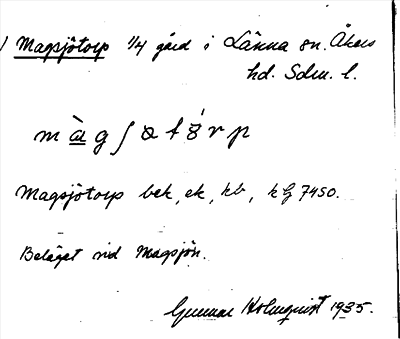 Magsjötorp 1/4 gård i Länna sn. Åkers
hd. Sdm. l.
Magsjötorp bek, ek, kb, kG 7450.
Beläget vid Magsjön.
Gunnar Holmquist 1935.